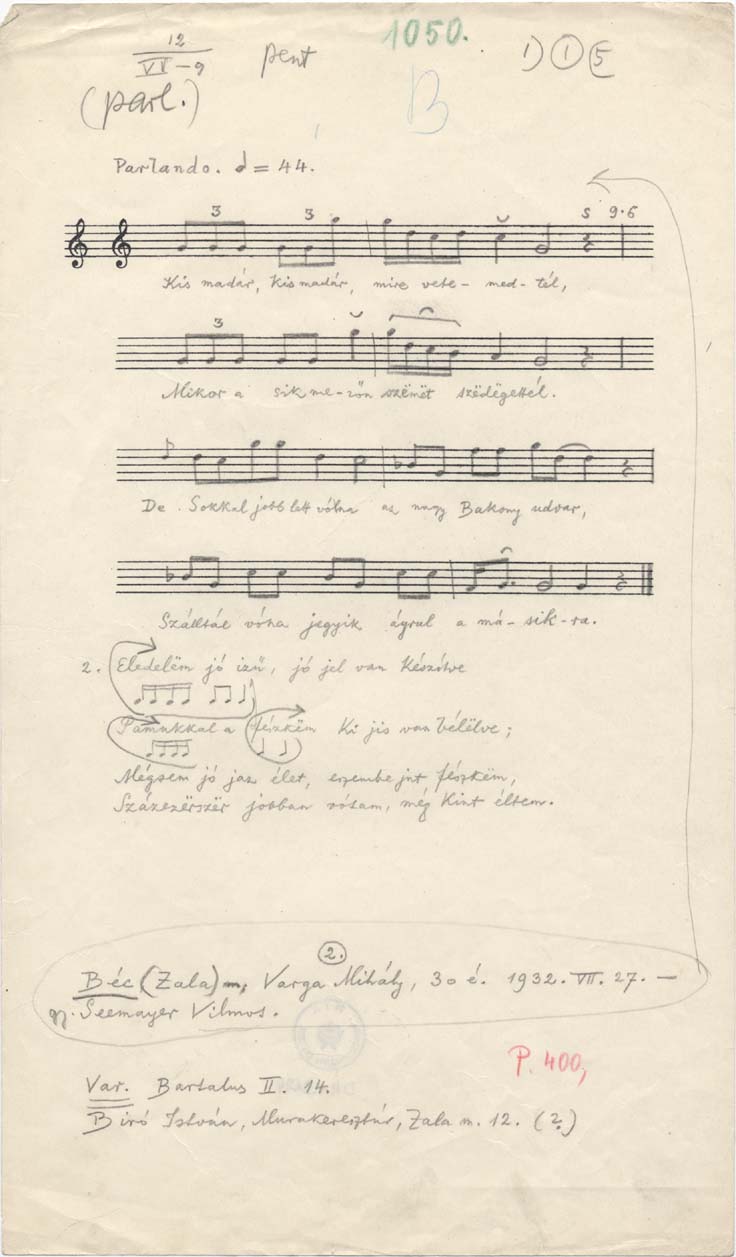 12 pent 1050. 1) 1 5
VI-9
(parl.) B
Parlando. = 44.
3 3 5 9.6
Kis madár, kis madár, mire vete- med- tél,
3
Mikor a sik me-zőn szëmët szëdëgettél.
De Sokkal jobb lett vólna az nagy Bakony udvar,
Szálltál vóna jegyik ágrul a má-sik-ra.
2. Eledelëm jó izü, jó jel van készitve
Pamukkal a fészkëm Ki jis van bélelve;
Mégsem jó jaz élet, fészkëm,
Százezërszër jobban vótam, még kint éltem.
2.
Béc (Zala) m, Varga Mihály, 30 é. 1932. VII. 27. —
gy. Seemayer Vilmos.
P. 400,
Var. Bartalus II. 14.
Biró István, Murakeresztúr, Zala m. 12. (?)